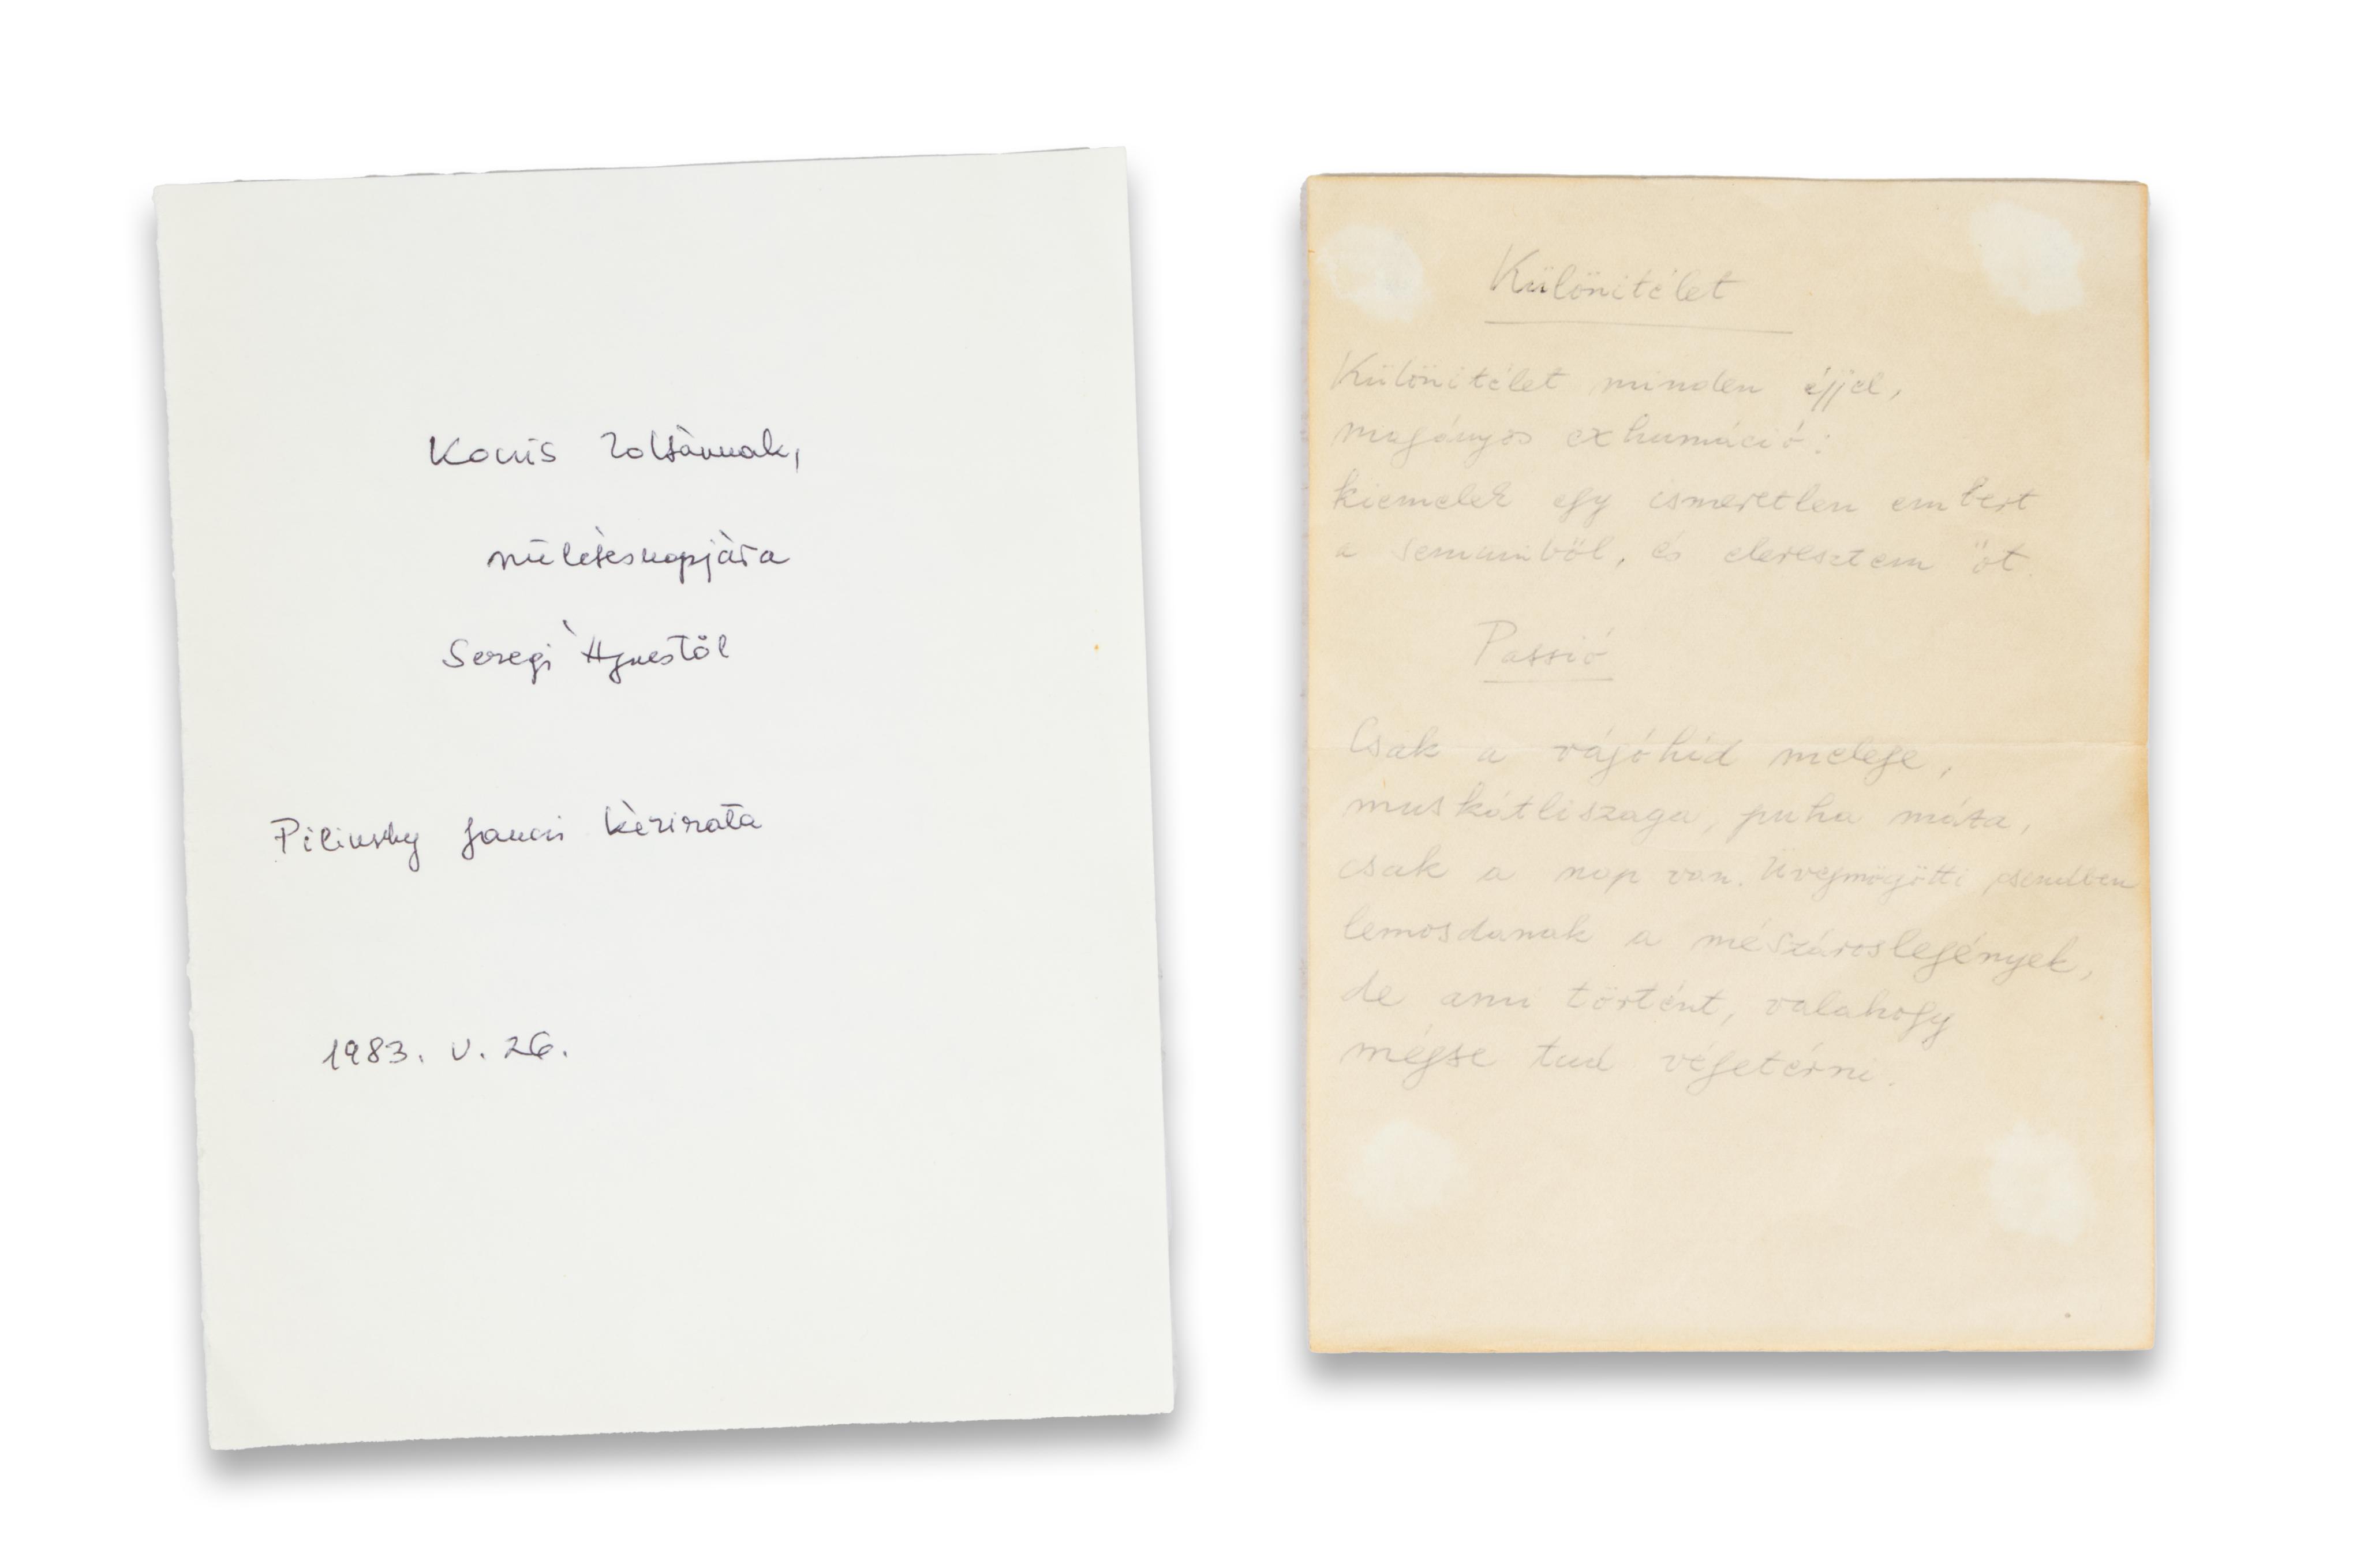 Kocsis Zoltánnak,
születésnapjára
Seregi Ágnestől
Pilinszky Jancsi kézirata
1983. V. 26.
Különitélet
Különitélet minden éjjel,
magányos exhumáció:
kiemelek egy ismeretlen embert
a semmiből, és eleresztem őt.
Passió
Csak a vágóhíd melege,
muskátliszaga, puha máza,
csak a nap van. Üvegmögötti csendben
lemosdanak a mészároslegények,
de ami történt, valahogy
mégse tud végetérni.